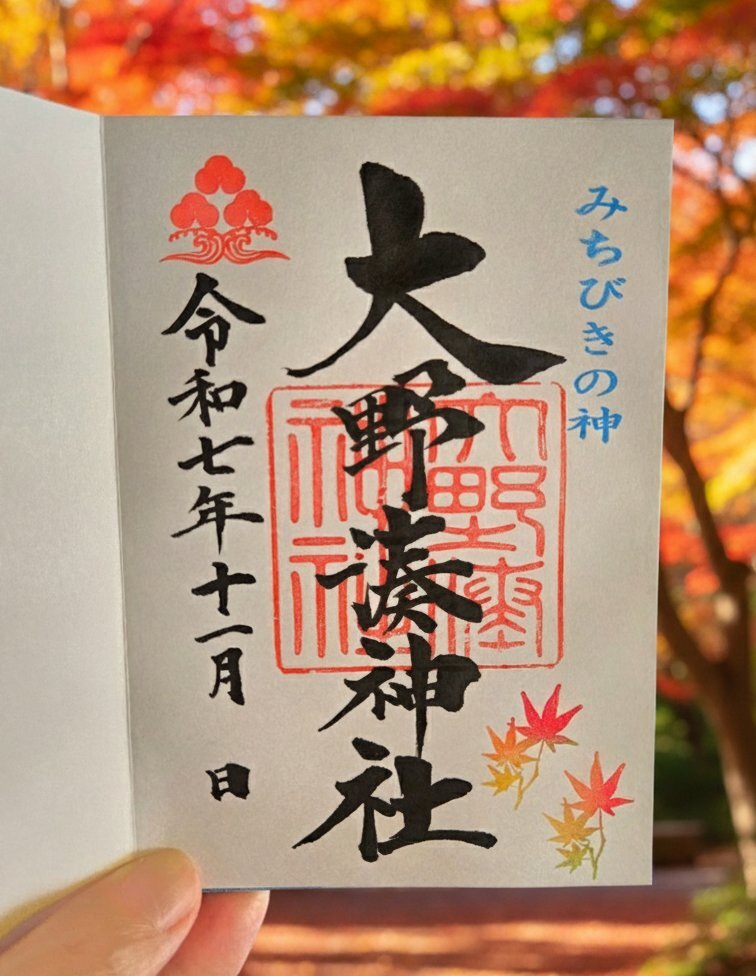 みちびきの神
大野湊神社
大野湊
神社
令和七年十一月 日